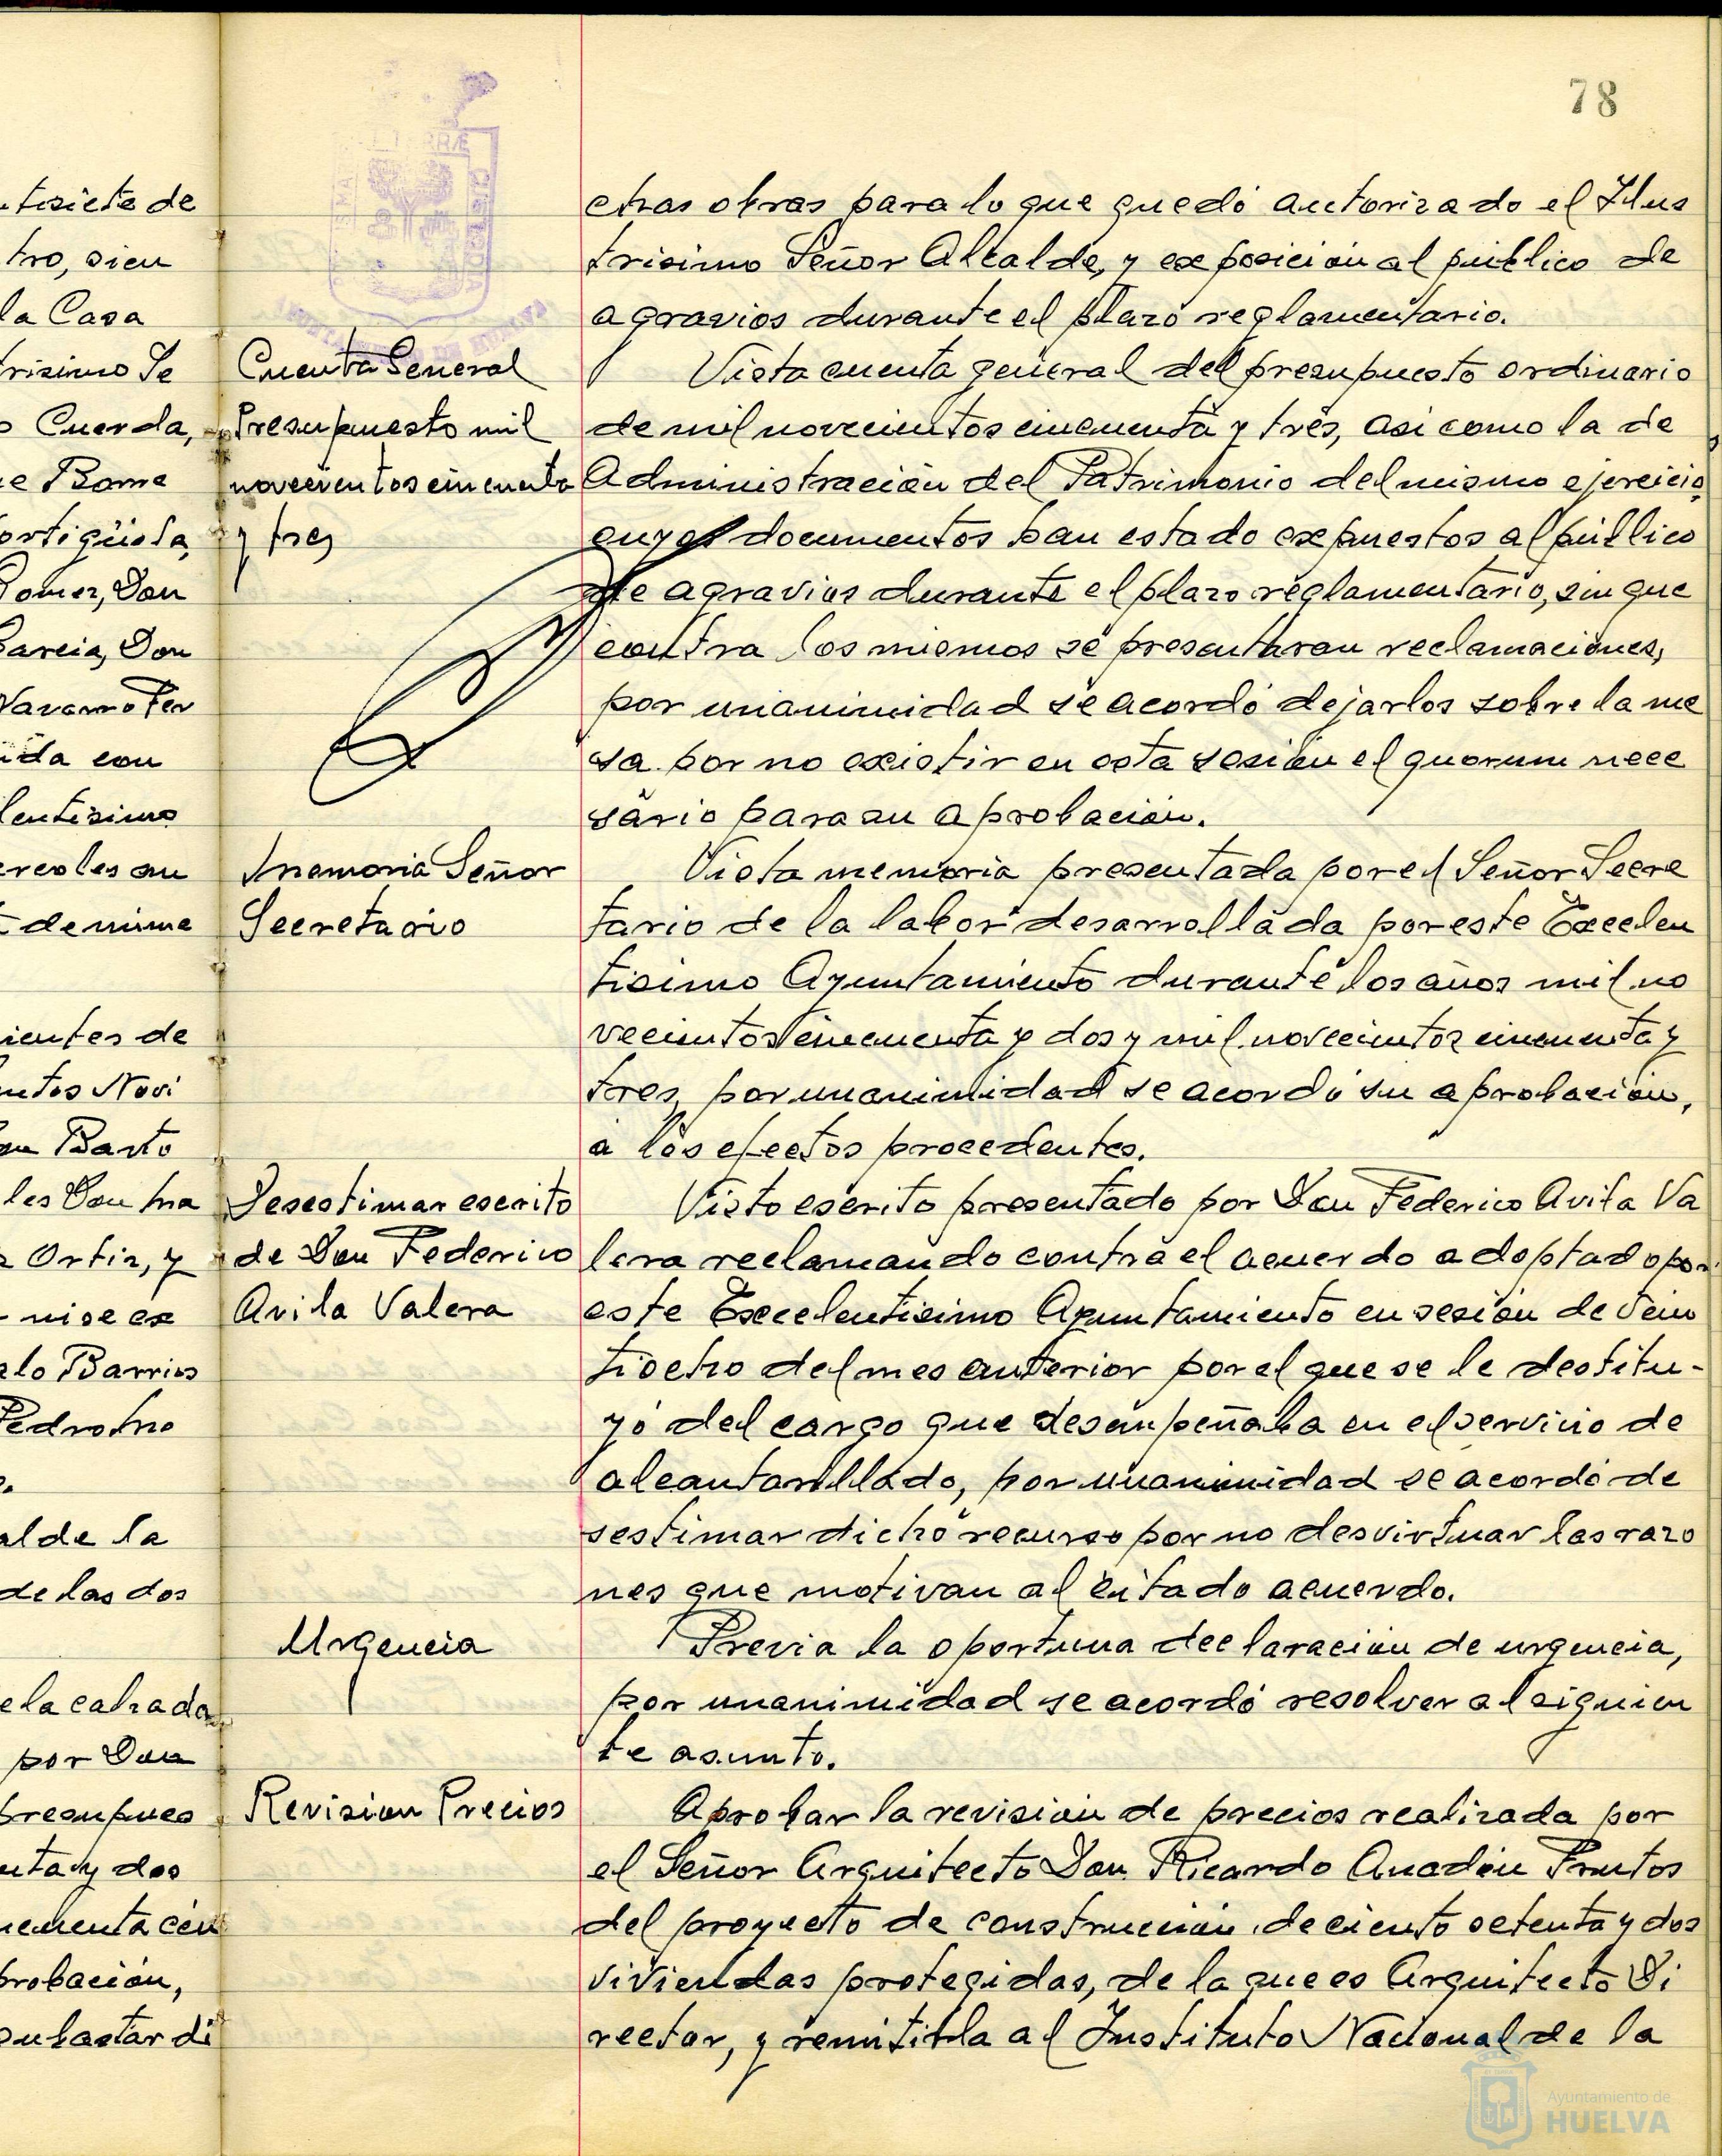 78
tisiete de
tro, sien
la Casa
trisimo Se
o Cuerda,
e Rome
ortigüela,
Gomez, Don
Garcia, Don
Navarro Fer
ida con
lentisimo
ercoles en
de nume
ientes de
ntos Novi
Barto
les Don Ma
Ortiz, y
ni se ex
lo Barrios
Pedro
al de la
de las dos
e la calzada
por Don
presupues
nta y dos
cuenta cén
probación,
subastar di
Cuenta General
Presupuesto mil
novecientos cincuenta
y tres
Memoria Señor
Secretario
Desestimar escrito
de Don Federico
Avila Valera
Urgencia
Revision Precios
chas obras para lo que quedó autorizado el Ilus
trisimo Señor Alcalde, y exposición al público de
agravios durante el plazo reglamentario.
Vista cuenta general del presupuesto ordinario
de mil novecientos cincuenta y tres, asi como la de
Administración del Patrimonio del mismo ejercicio,
cuyos documentos han estado expuestos al público
de agravios durante el plazo reglamentario, sin que
contra los mismos se presentaran reclamaciones,
por unanimidad se acordó dejarlos sobre la me
sa por no existir en esta sesión el quorum nece
sario para su aprobación.
Vista memoria presentada por el Señor Secre
tario de la labor desarrollada por este Excelen
tisimo Ayuntamiento durante los años mil no
vecientos cincuenta y dos y mil novecientos cincuenta y
tres, por unanimidad se acordó su aprobación,
a los efectos procedentes.
Visto escrito presentado por Don Federico Avila Va
lera reclamando contra el acuerdo adoptado por
este Excelentisimo Ayuntamiento en sesión de vein
tiocho del mes anterior por el que se le destitu-
yó del cargo que desempeñaba en el servicio de
alcantarillado, por unanimidad se acordó de
sestimar dicho recurso por no desvirtuar las razo
nes que motivan al citado acuerdo.
Previa la oportuna declaración de urgencia,
por unanimidad se acordó resolver al siguien
te asunto.
Aprobar la revisión de precios realizada por
el Señor Arquitecto Don Ricardo Anadón Frutos
del proyecto de construcción de ciento setenta y dos
viviendas protegidas, de la que es Arquitecto Di
rector, y remitirla al Instituto Nacional de la
Ayuntamiento de
HUELVA